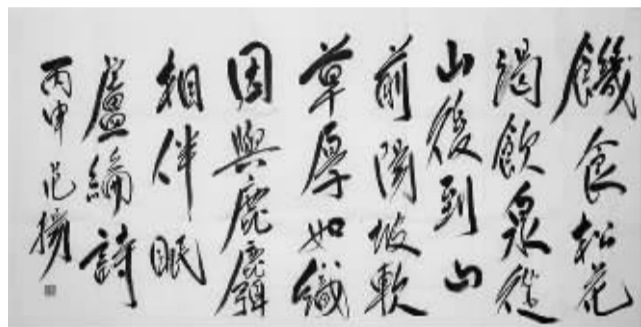 饑食松花
渴飲泉從
山後到山
前陽坡軟
草厚如織
因與鹿麛
相伴眠
盧綸詩
丙申 范揚